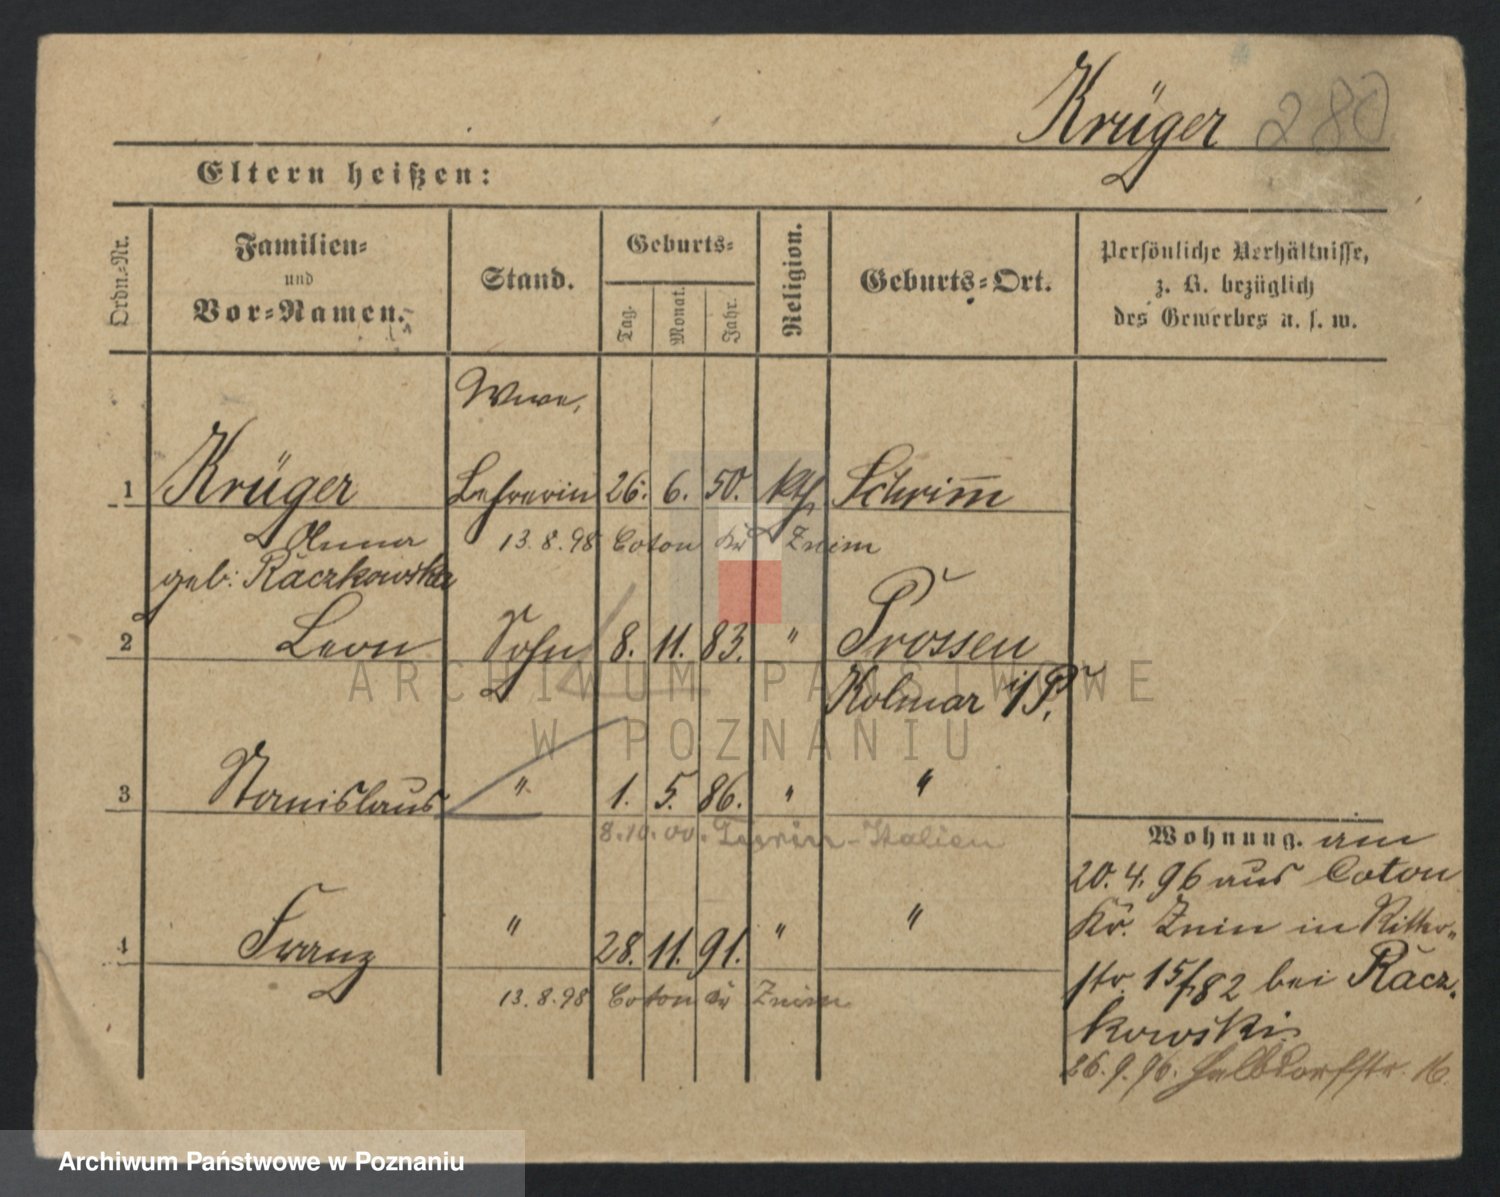 Krüger 280
Eltern heißen:
Ordn.-Nr.
Familien-
und
Vor-Namen.
Stand.
Geburts-
Tag.
Monat.
Jahr.
Religion.
Geburts-Ort.
Persönliche Verhältnisse,
z. B. bezüglich
des Gewerbes u. s. w.
Wwe,
1 Krüger Lehrerin 26. 6. 50. kth. Schrim̄
Anna 13.8.98 Coton Kr Znim
geb: Raczkowska
2 Leon Sohn 8. 11. 83. " Prossen
Kolmar i/P.
3 Stanislaus " 1. 5. 86. " "
8.10.00. Turin-Italien
4 Franz " 28. 11. 91. " "
13.8.98 Coton Kr Znim
Wohnung. am
20.4.96 aus Coton
Kr. Znin in Ritter-
str. 15/82 bei Racz-
kowski.
26.9.96. Halbdorfstr. 16.
ARCHIWUM PAŃSTWOWE
W POZNANIU
Archiwum Państwowe w Poznaniu